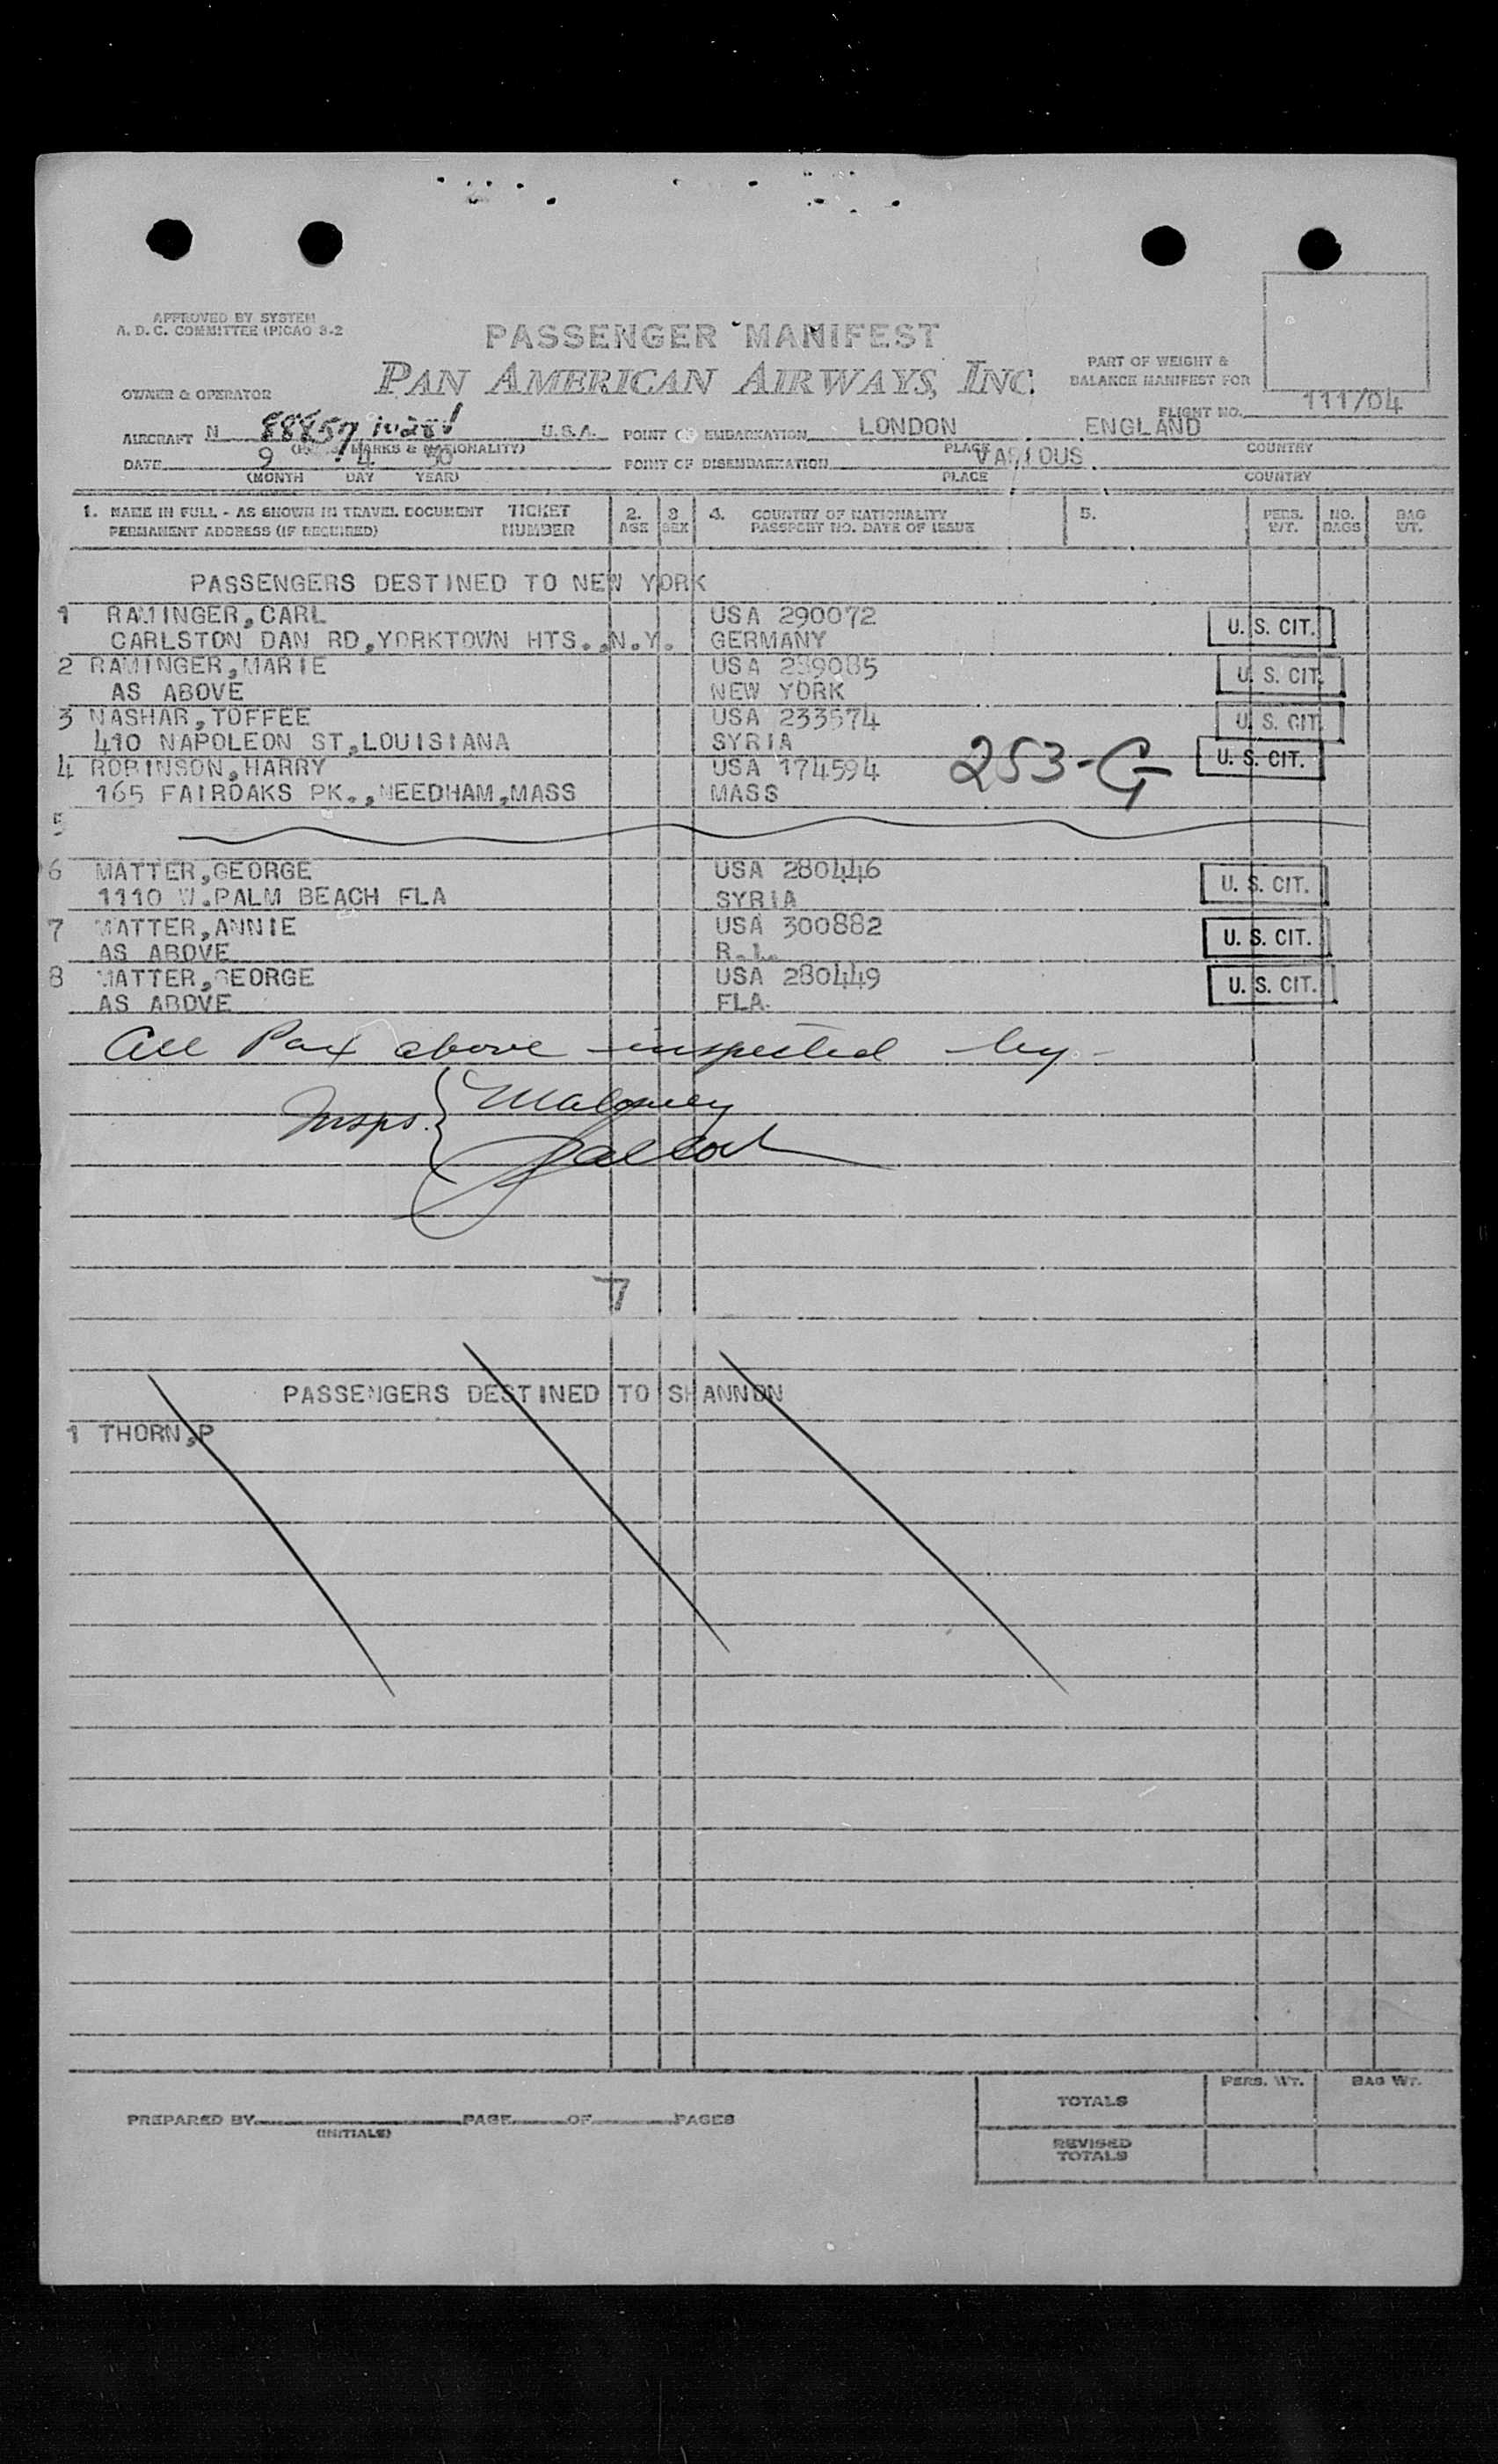 APPROVED BY SYSTEM
A. D. C. COMMITTEE (PICAO 3-2
PASSENGER MANIFEST
PAN AMERICAN AIRWAYS, INC.
PART OF WEIGHT &
BALANCE MANIFEST FOR
OWNER & OPERATOR
FLIGHT NO. 111/04
AIRCRAFT N 88857 U.S.A. POINT OF EMBARKATION LONDON ENGLAND
MARKS & NATIONALITY) PLACE COUNTRY
DATE 9 4 50 POINT OF DISEMBARKATION VARIOUS
(MONTH DAY YEAR) PLACE COUNTRY
1. NAME IN FULL - AS SHOWN IN TRAVEL DOCUMENT TICKET 2. 3 4. COUNTRY OF NATIONALITY 5. PERS. NO. BAG
PERMANENT ADDRESS (IF REQUIRED) NUMBER AGE SEX PASSPORT NO. DATE OF ISSUE WT. BAGS WT.
PASSENGERS DESTINED TO NEW YORK
1 RAMINGER,CARL USA 290072 U. S. CIT.
CARLSTON DAN RD,YORKTOWN HTS.,N.Y. GERMANY
2 RAMINGER,MARIE USA 289085 U. S. CIT.
AS ABOVE NEW YORK
3 NASHAR,TOFFEE USA 233574 U. S. CIT
410 NAPOLEON ST,LOUISIANA SYRIA
4 ROBINSON,HARRY USA 174594 253-G U. S. CIT.
165 FAIROAKS PK.,NEEDHAM,MASS MASS
5
6 MATTER,GEORGE USA 280446 U. S. CIT.
1110 W.PALM BEACH FLA SYRIA
7 MATTER,ANNIE USA 300882 U. S. CIT.
AS ABOVE R.I.
8 MATTER,GEORGE USA 280449 U. S. CIT.
AS ABOVE FLA.
All Pax above inspected by -
Insps. Maloney
7
PASSENGERS DESTINED TO SHANNON
1 THORN,P
PERS. WT. BAG WT.
TOTALS
PREPARED BY PAGE OF PAGES
(INITIALS)
REVISED
TOTALS